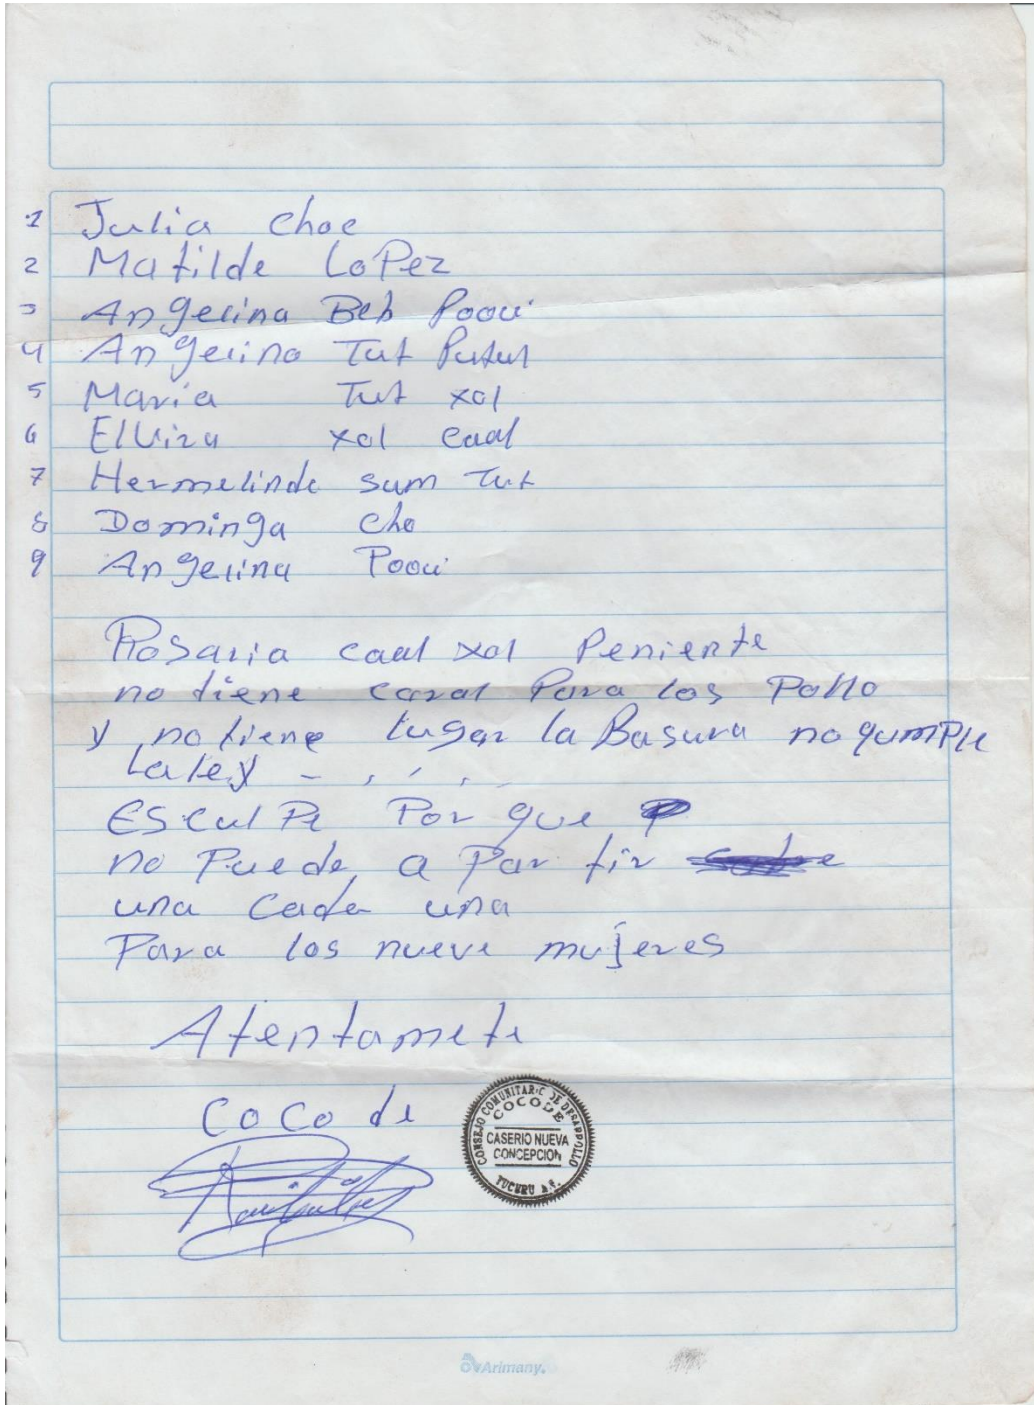 1 Julia choc
2 Matilde LoPez
3 Angelina Beb Pooui
4 Angelina Tut Putul
5 Maria Tut xol
6 ElVira xol caal
7 Hermelinda sum Tut
8 Dominga cho
9 Angelina Pooui
Rosaria caal xol Peniente
no tiene caral Para los Pollo
y no tiene lugar la Basura no qumPle
La ley
EsculPe Por que
no Puede a Par tir
una cada una
Para los nueve mujeres
Atentamete
CoCo de
CONSEJO COMUNITARIO DE DESARROLLO
COCODE
CASERIO NUEVA
CONCEPCION
TUCURU A.V.
Arimany.